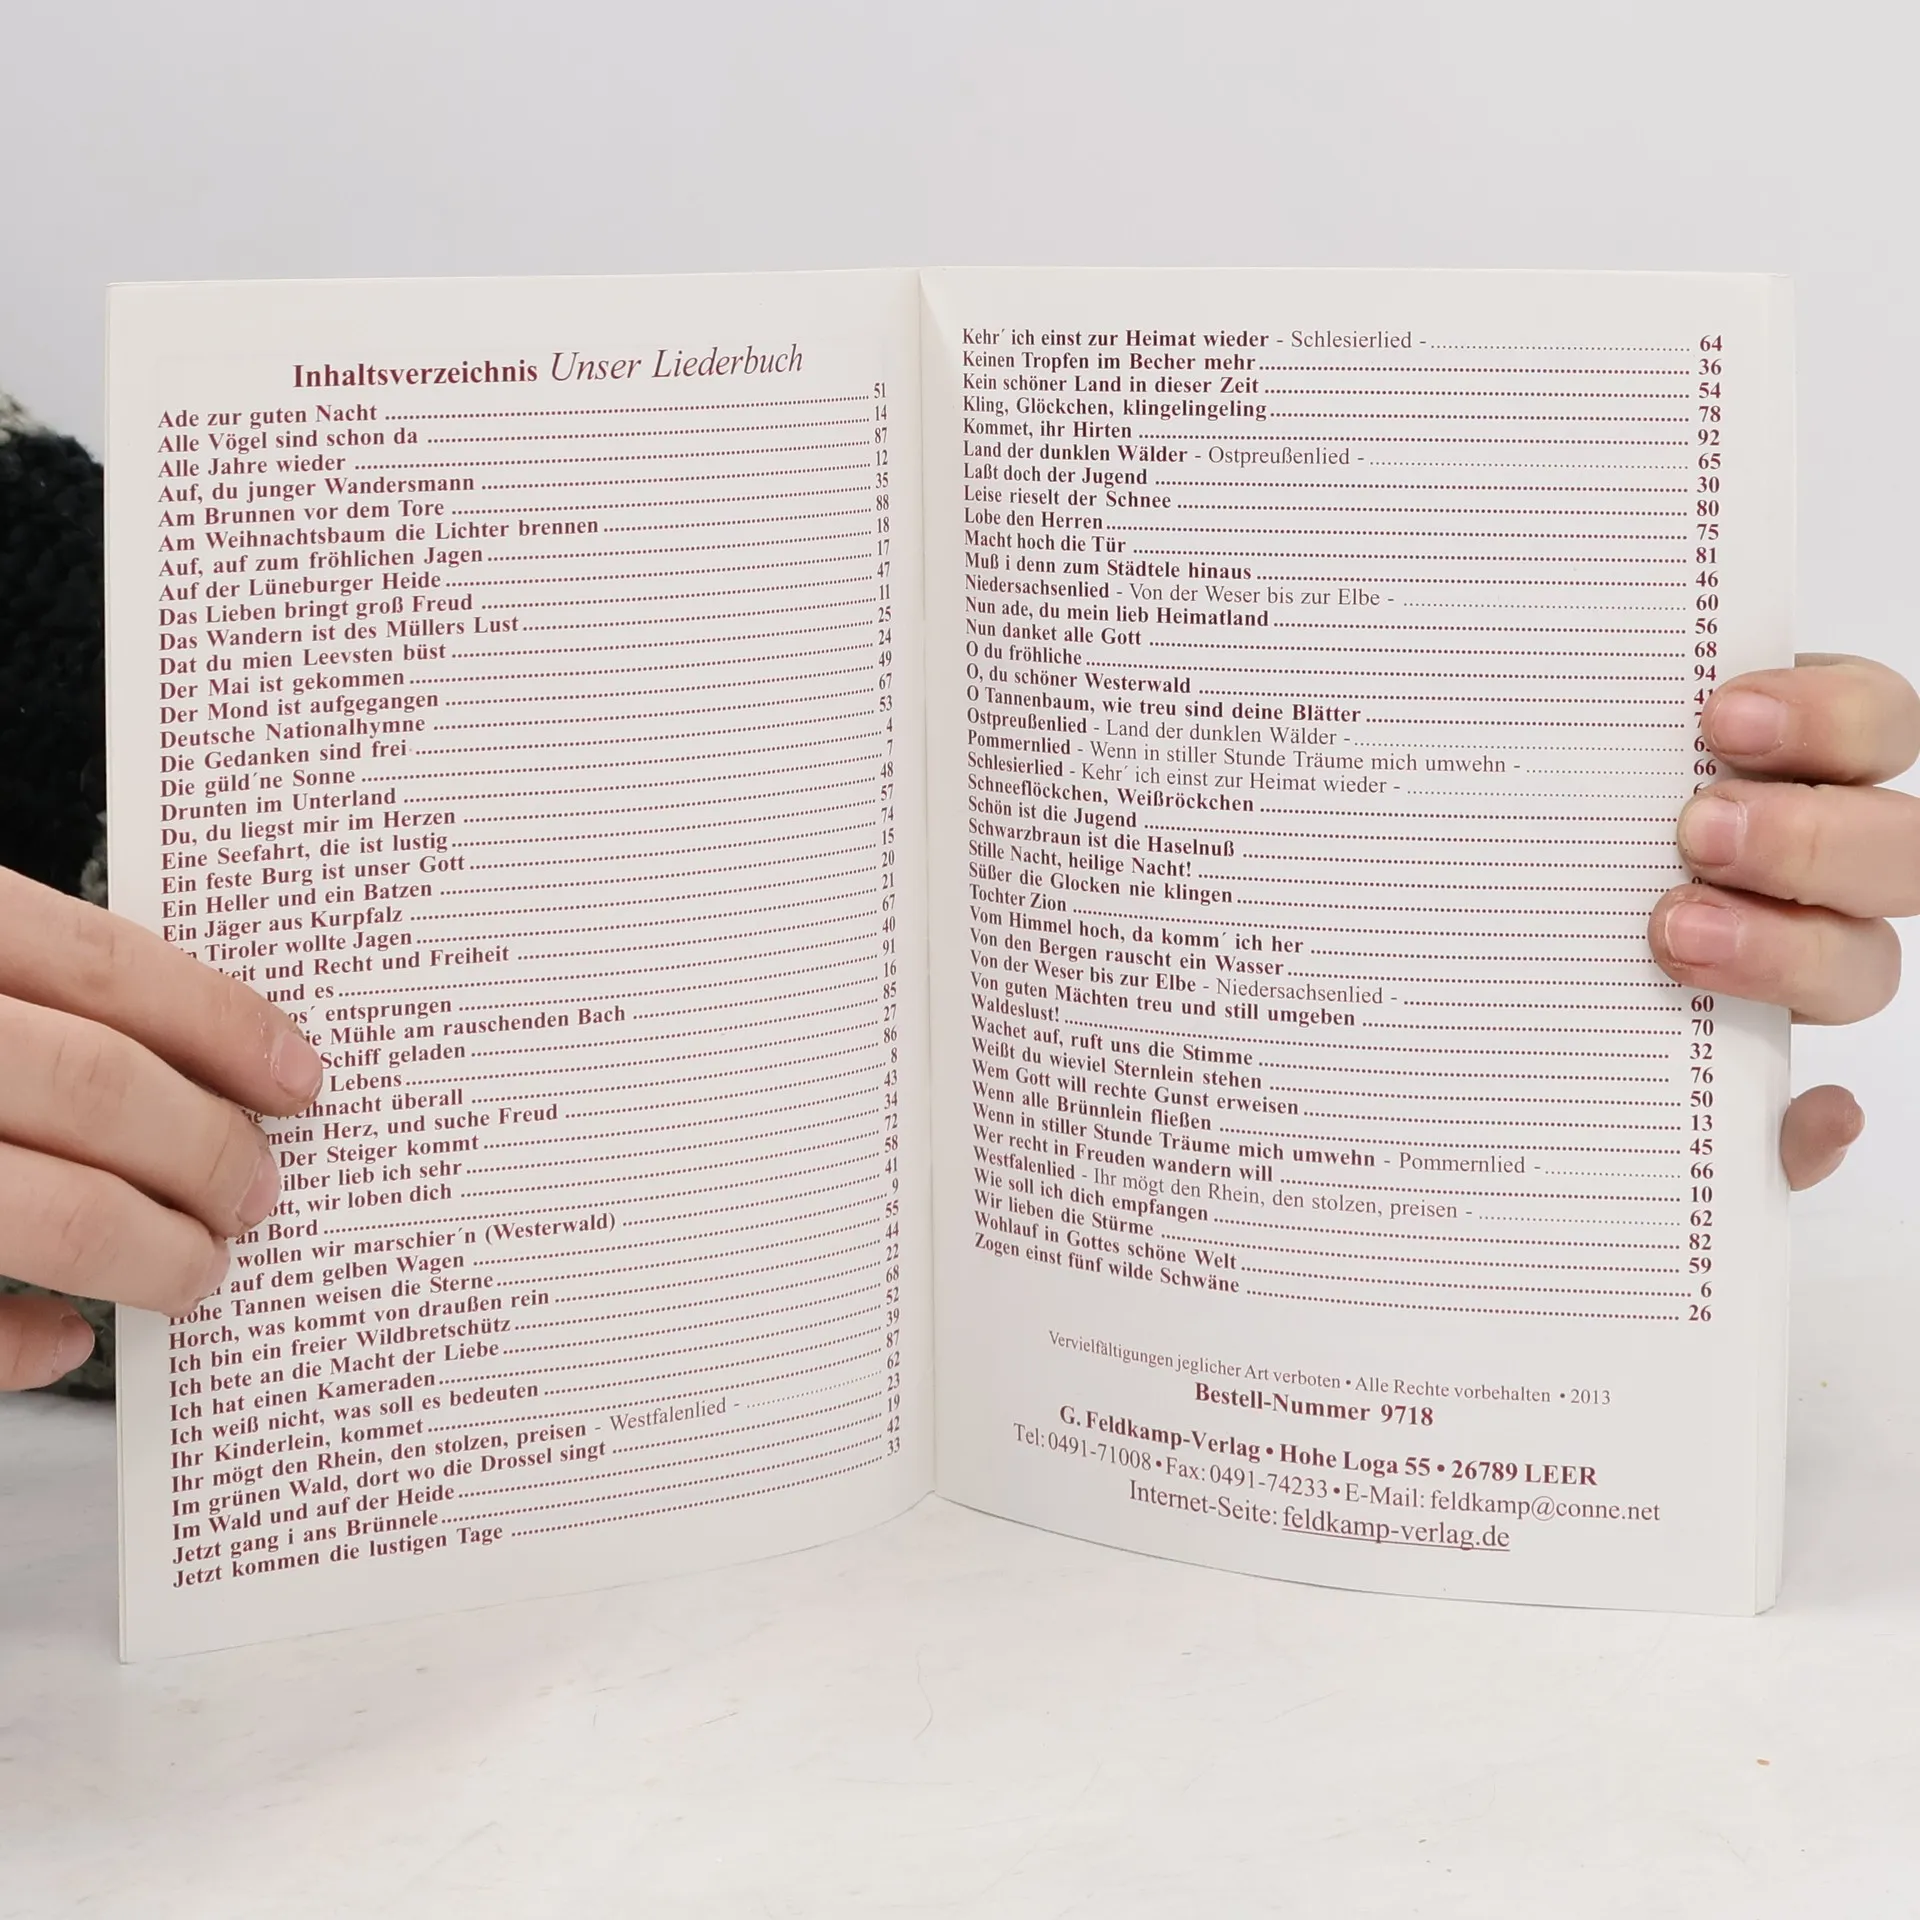 Inhaltsverzeichnis Unser Liederbuch
Ade zur guten Nacht ........ 51
Alle Vögel sind schon da ........ 14
Alle Jahre wieder ........ 87
Auf, du junger Wandersmann ........ 12
Am Brunnen vor dem Tore ........ 35
Am Weihnachtsbaum die Lichter brennen ........ 88
Auf, auf zum fröhlichen Jagen ........ 18
Auf der Lüneburger Heide ........ 17
Das Lieben bringt groß Freud ........ 47
Das Wandern ist des Müllers Lust ........ 11
Dat du mien Leevsten büst ........ 25
Der Mai ist gekommen ........ 24
Der Mond ist aufgegangen ........ 49
Deutsche Nationalhymne ........ 67
Die Gedanken sind frei ........ 53
Die güld´ne Sonne ........ 4
Drunten im Unterland ........ 7
Du, du liegst mir im Herzen ........ 48
Eine Seefahrt, die ist lustig ........ 57
Ein feste Burg ist unser Gott ........ 74
Ein Heller und ein Batzen ........ 15
Ein Jäger aus Kurpfalz ........ 20
Tiroler wollte Jagen ........ 21
und Recht und Freiheit ........ 67
und es ........ 40
entsprungen ........ 91
Mühle am rauschenden Bach ........ 16
Schiff geladen ........ 85
Lebens ........ 27
überall ........ 86
mein Herz, und suche Freud ........ 8
Der Steiger kommt ........ 43
lieb ich sehr ........ 34
wir loben dich ........ 72
an Bord ........ 58
wollen wir marschier´n (Westerwald) ........ 41
auf dem gelben Wagen ........ 9
Hohe Tannen weisen die Sterne ........ 55
Horch, was kommt von draußen rein ........ 44
Ich bin ein freier Wildbretschütz ........ 22
Ich bete an die Macht der Liebe ........ 68
Ich hat einen Kameraden ........ 52
Ich weiß nicht, was soll es bedeuten ........ 39
Ihr Kinderlein, kommet ........ 87
Ihr mögt den Rhein, den stolzen, preisen - Westfalenlied - ........ 62
Im grünen Wald, dort wo die Drossel singt ........ 23
Im Wald und auf der Heide ........ 19
Jetzt gang i ans Brünnele ........ 42
Jetzt kommen die lustigen Tage ........ 33
Kehr´ ich einst zur Heimat wieder - Schlesierlied - ........ 64
Keinen Tropfen im Becher mehr ........ 36
Kein schöner Land in dieser Zeit ........ 54
Kling, Glöckchen, klingelingeling ........ 78
Kommet, ihr Hirten ........ 92
Land der dunklen Wälder - Ostpreußenlied - ........ 65
Laßt doch der Jugend ........ 30
Leise rieselt der Schnee ........ 80
Lobe den Herren ........ 75
Macht hoch die Tür ........ 81
Muß i denn zum Städtele hinaus ........ 46
Niedersachsenlied - Von der Weser bis zur Elbe - ........ 60
Nun ade, du mein lieb Heimatland ........ 56
Nun danket alle Gott ........ 68
O du fröhliche ........ 94
O, du schöner Westerwald ........ 41
O Tannenbaum, wie treu sind deine Blätter ........
Ostpreußenlied - Land der dunklen Wälder - ........
Pommernlied - Wenn in stiller Stunde Träume mich umwehn - ........ 66
Schlesierlied - Kehr´ ich einst zur Heimat wieder - ........
Schneeflöckchen, Weißröckchen ........
Schön ist die Jugend ........
Schwarzbraun ist die Haselnuß ........
Stille Nacht, heilige Nacht! ........
Süßer die Glocken nie klingen ........
Tochter Zion ........
Vom Himmel hoch, da komm´ ich her ........
Von den Bergen rauscht ein Wasser ........
Von der Weser bis zur Elbe - Niedersachsenlied - ........ 60
Von guten Mächten treu und still umgeben ........ 70
Waldeslust! ........ 32
Wachet auf, ruft uns die Stimme ........ 76
Weißt du wieviel Sternlein stehen ........ 50
Wem Gott will rechte Gunst erweisen ........ 13
Wenn alle Brünnlein fließen ........ 45
Wenn in stiller Stunde Träume mich umwehn - Pommernlied - ........ 66
Wer recht in Freuden wandern will ........ 10
Westfalenlied - Ihr mögt den Rhein, den stolzen, preisen - ........ 62
Wie soll ich dich empfangen ........ 82
Wir lieben die Stürme ........ 59
Wohlauf in Gottes schöne Welt ........ 6
Zogen einst fünf wilde Schwäne ........ 26
Vervielfältigungen jeglicher Art verboten • Alle Rechte vorbehalten • 2013
Bestell-Nummer 9718
G. Feldkamp-Verlag • Hohe Loga 55 • 26789 LEER
Tel: 0491-71008 • Fax: 0491-74233 • E-Mail: feldkamp@conne.net
Internet-Seite: feldkamp-verlag.de